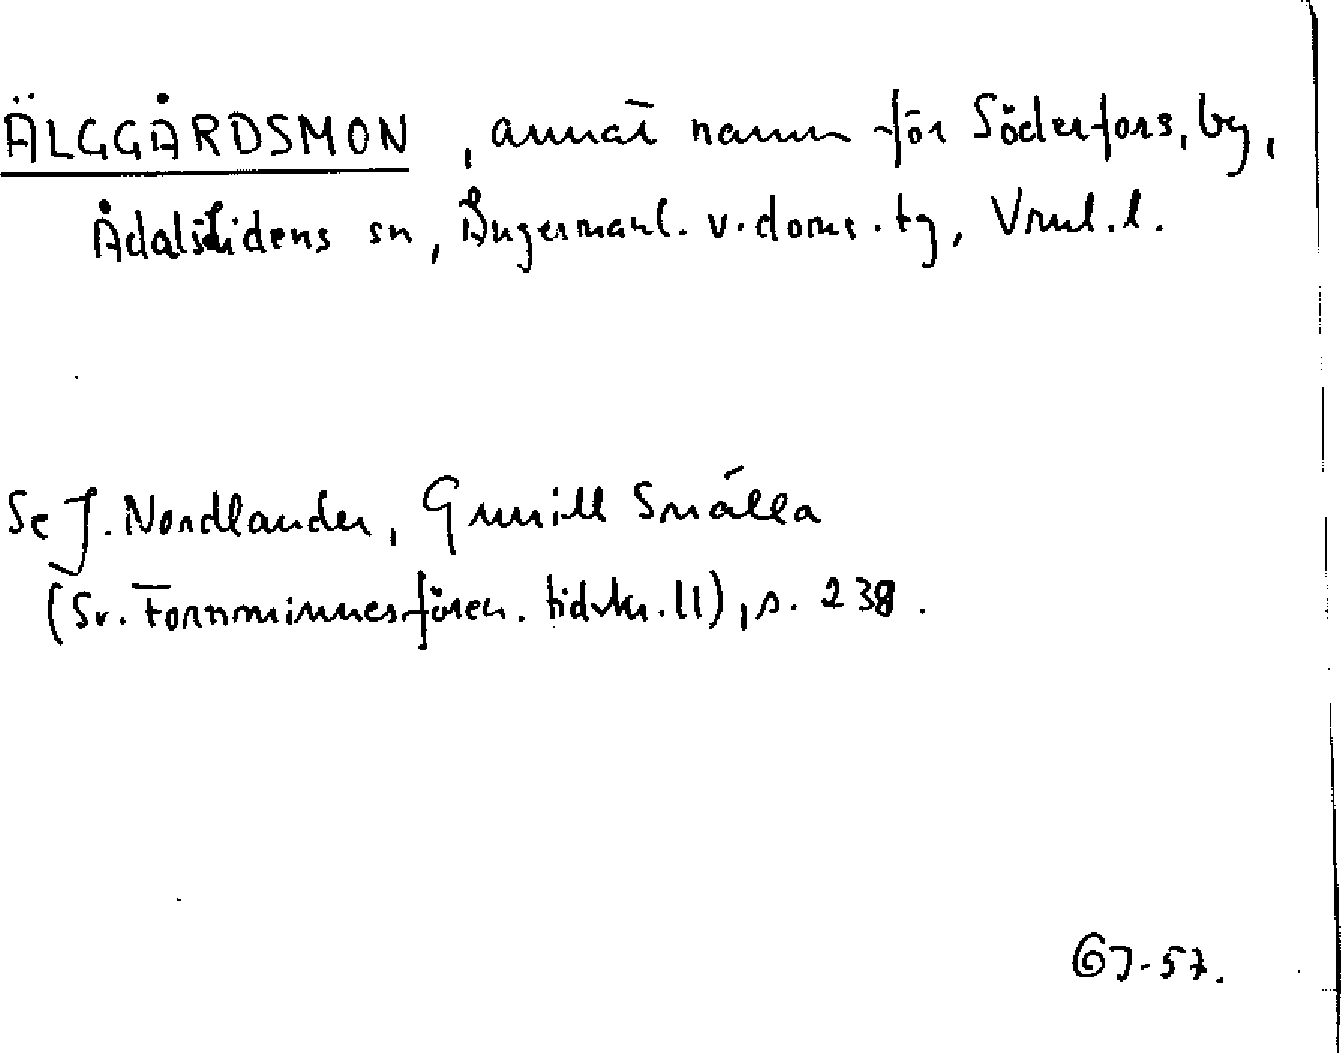 ÄLGGÅRDSMON, annat namn för Söderfors, by,
Ådalslidens sn, Ångermanl. v. doms. tg, Vrnl. l.
Se J. Nordlander, Gunill Snälla
(Sv. Fornminnesfören. tidskr. 11), s. 238.
GJ-57.